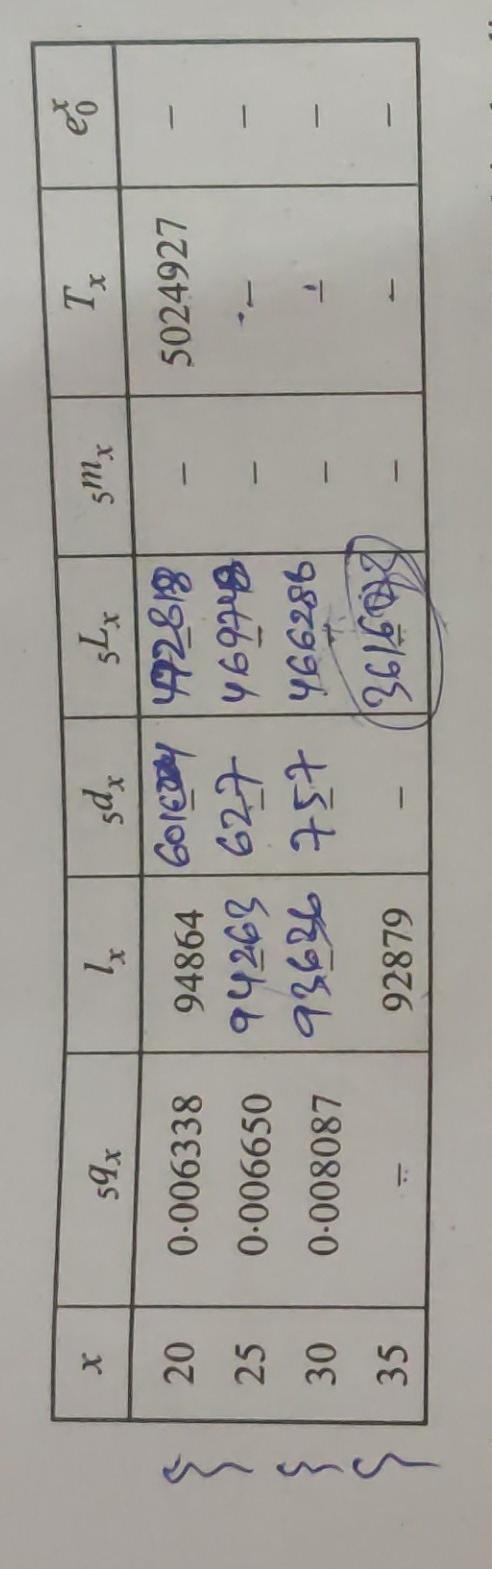 x 5qx lx 5dx 5Lx 5mx Tx e0x
20 0·006338 94864 601 472818 – 5024927 –
25 0·006650 94263 627 469748 – – –
30 0·008087 93636 757 466286 – – –
35 – 92879 – – – –